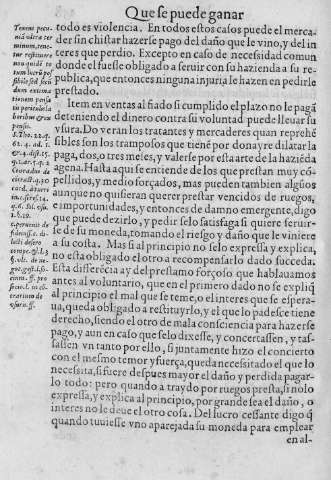 Que se puede ganar
todo es violencia. En todos estos casos puede el merca-
der sin chistar hazerse pago del daño que le vino, y del in
teres que perdio. Excepto en caso de necessidad comun
donde el fuesse obligado a seruir con su hazienda a su re
publica, que entonces ninguna injuria le hazen en pedirle
prestado.
Item en ventas al fiado si cumplido el plazo no le pagã
deteniendo el dinero contra su voluntad puede lleuar su
vsura. Do veran los tratantes y mercaderes quan reprehẽ
sibles son los tramposos que tienẽ por donayre dilatar la
paga, dos, o tres meles, y valerse por esta arte de la haziẽda
agena. Hasta aqui se entiende de los que prestan muy cõ-
pellidos, y medio forçados, mas pueden tambien algũos
aunque no quisieran querer prestar vencidos de ruegos,
e importunidades, y entonces de damno emergente, digo
que puede dezirlo, y pedir selo satisfaga si quiere seruir-
se de su moneda, tomando el riesgo y daño que le viniere
a su costa. Mas si al principio no selo expressa y explica,
no esta obligado el otro a recompensarlo dado succeda.
Esta differẽcia ay del prestamo forçoso que hablauamos
antes al voluntario, que en el primero dado no se expliq̃
al principio el mal que se teme, o el interes que se espera-
ua, queda obligado a restituyrlo, y el que lo padesce tiene
derecho, siendo el otro de mala consciencia para hazerse
pago, y aun en caso que selo dixesse, y concertassen, y tas-
sassen vn tanto por ello, si juntamente hizo el concierto
con el mesmo temor y fuerça, queda necessitado el que lo
necessita, si fuere despues mayor el daño y perdida pagar-
lo todo: pero quando a traydo por ruegos presta, si nolo
expressa, y explica al principio, por grande sea el daño, o
interes no le deue el otro cosa. Del lucro cessante digo q̃
quando tuuiesse vno aparejada su moneda para emplear
en al-